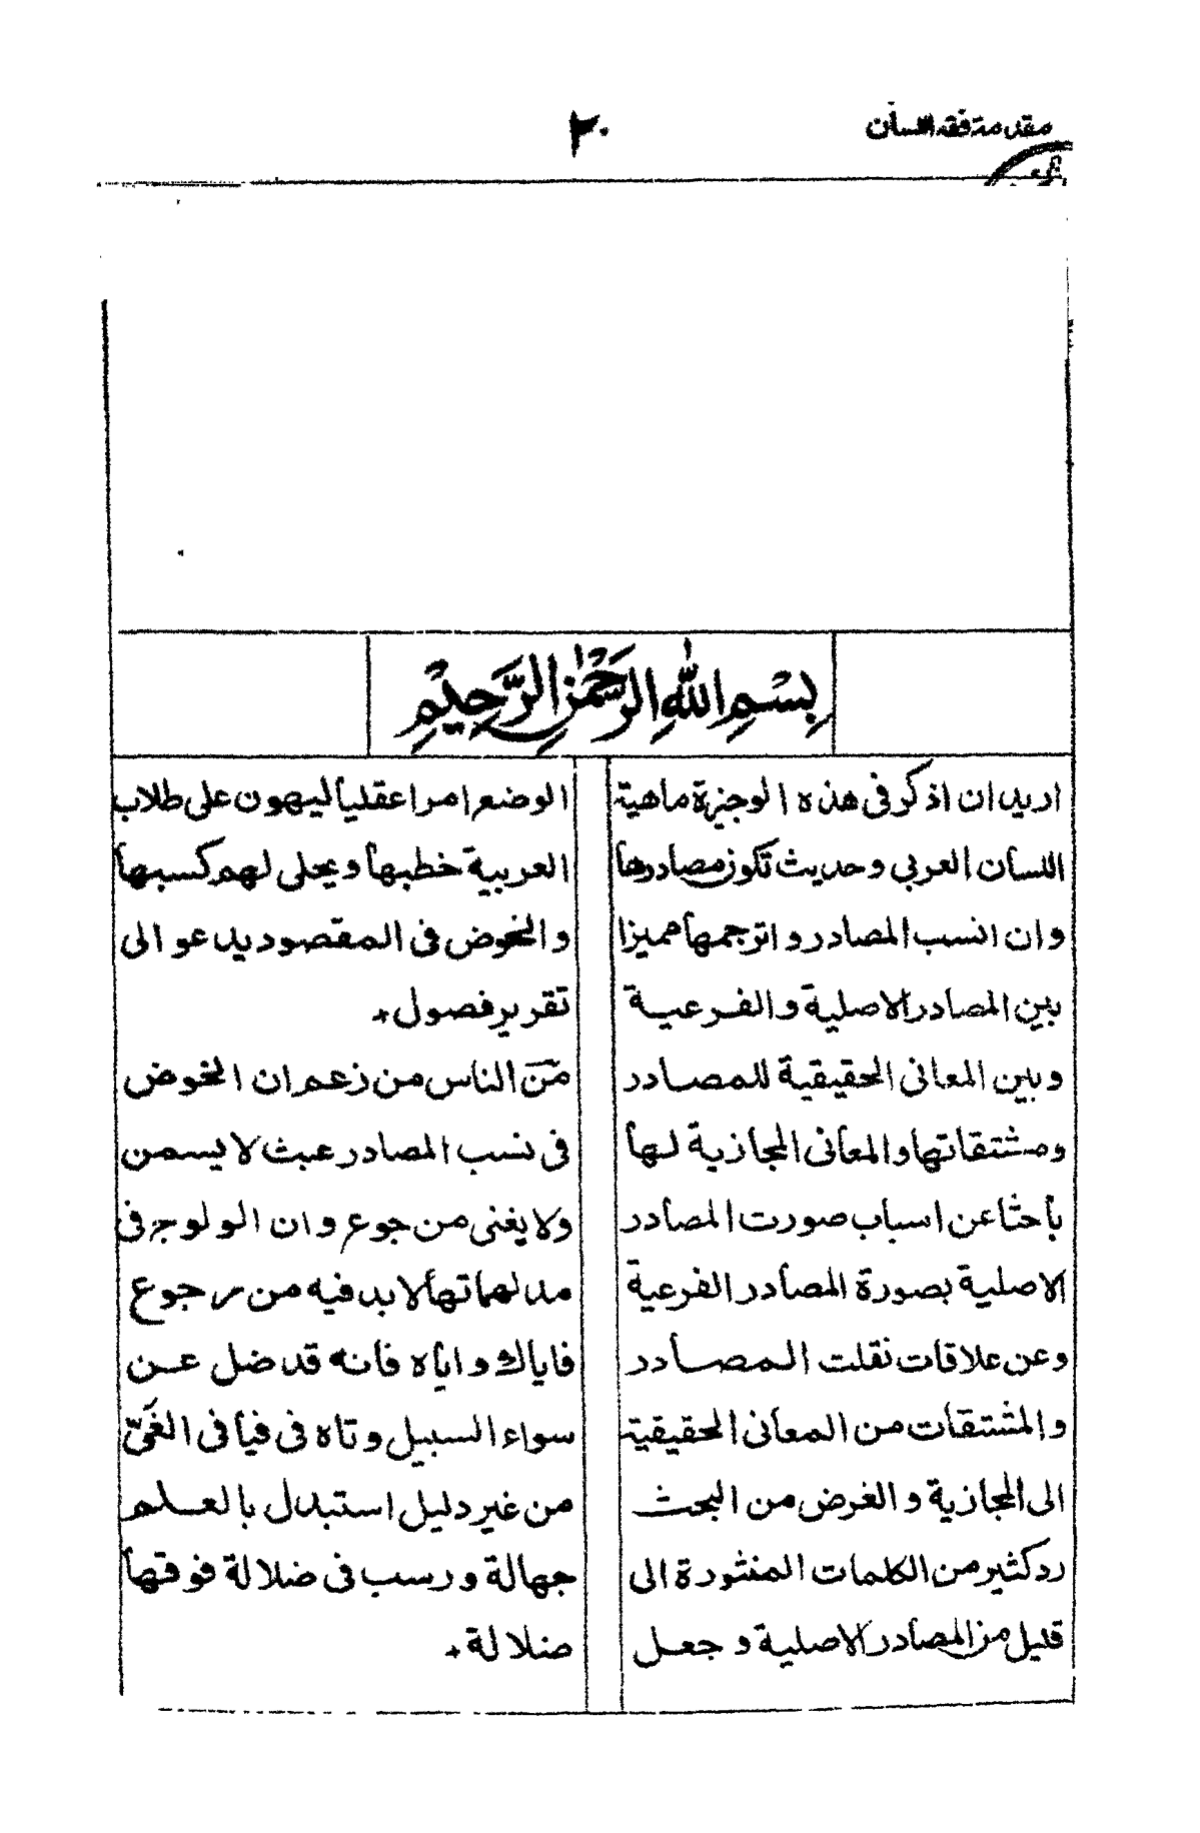 مقدمة فقه اللسان
٢٠
بِسْمِ اللهِ الرَّحْمٰنِ الرَّحِيْمِ
اريد ان اذكر فى هذه الوجيزة ماهية
اللسان العربي وحديث تكون مصادرها
وان انسب المصادر واترجمها مميزا
بين المصادر الاصلية والفرعية
وبين المعانى الحقيقية للمصادر
ومشتقاتها والمعانى المجازية لها
باحثا عن اسباب صورت المصادر
الاصلية بصورة المصادر الفرعية
وعن علاقات نقلت المصادر
والمشتقات من المعانى الحقيقية
الى المجازية والغرض من البحث
رد كثير من الكلمات المنثورة الى
قليل من المصادر الاصلية وجعل
الوضع امرا عقليا ليهون على طلاب
العربية خطبها ويجلى لهم كسبها
والخوض فى المقصود يدعو الى
تقرير فصول ٭
مِنَ الناس من زعم ان الخوض
فى نسب المصادر عبث لا يسمن
ولا يغنى من جوع وان الولوج فى
مدلهماتها لابد فيه من رجوع
فاياك واياه فانه قد ضل عن
سواء السبيل وتاه فى فيافى الغَىّ
من غير دليل استبدل بالعلم
جهالة ورسب فى ضلالة فوقها
ضلالة ٭